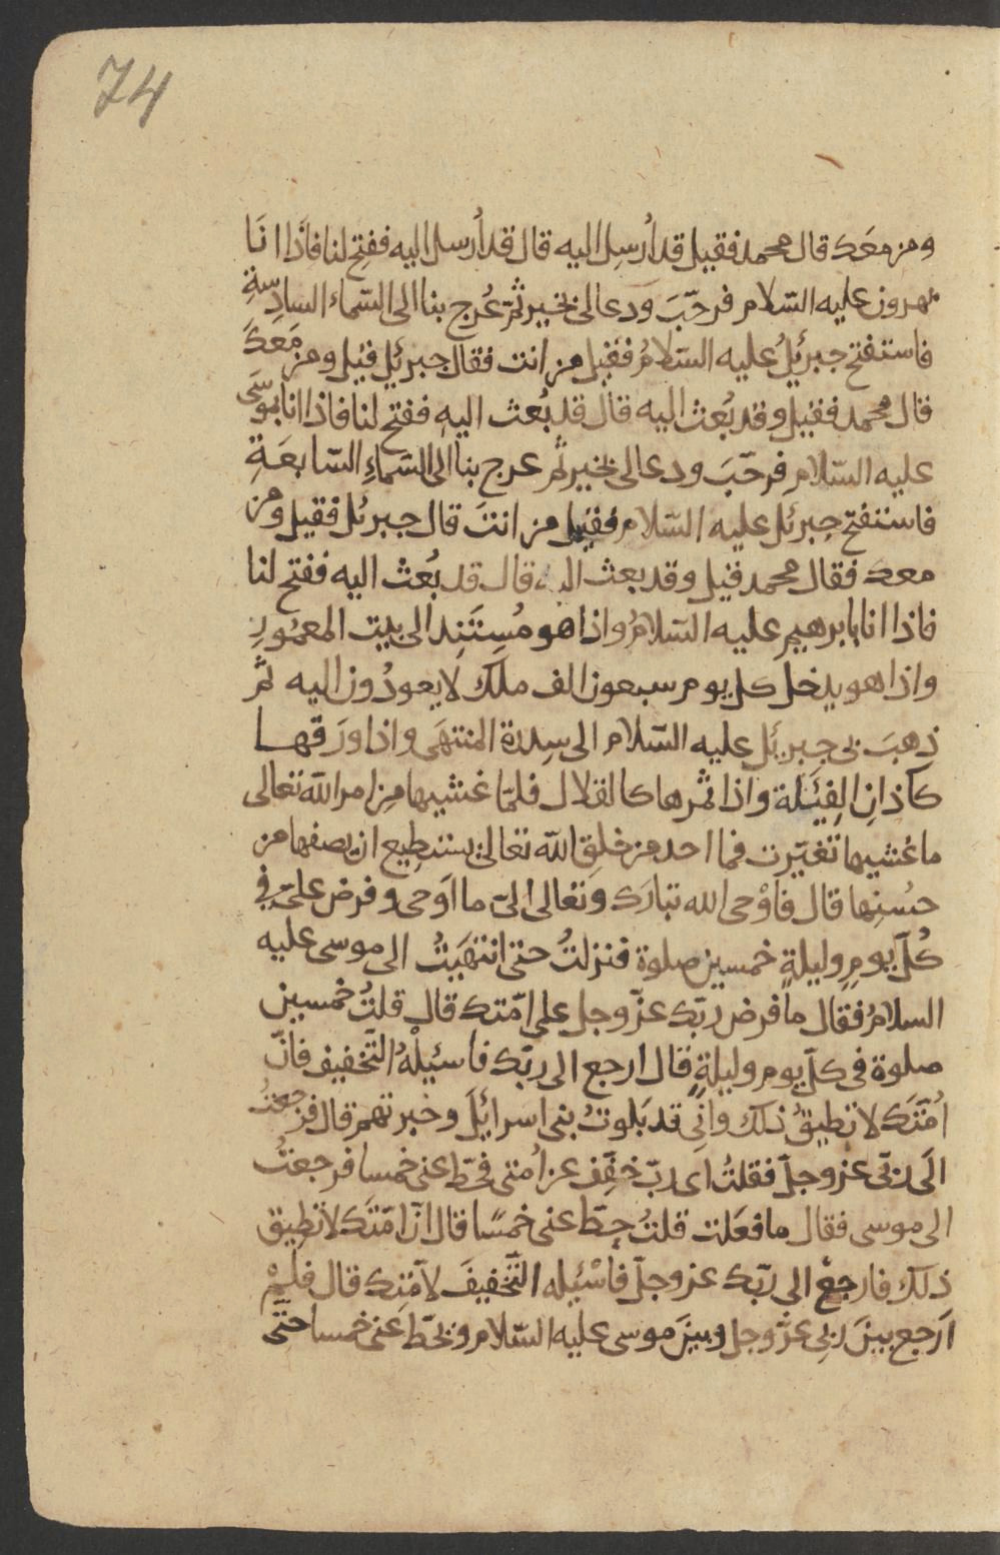 74
ومن معك قال محمد فقيل قد أُرسِل اليه قال قد أُرسل اليه ففتِح لنا فاذا انَا
بهرون عليه السّلام فرحّبَ ودعا لى بخير ثمّ عُرج بنا الى السّماء السادِسةِ
فاستفتح جبرئلُ عليه السّلامُ فقيل من انت فقال جبرئل قيل ومن مَعكَ
قال محمد فقيل وقد بُعث اليه قال قد بُعث اليهِ ففتح لنا فاذا انا بموسَى
عليه السّلامِ فرحّبَ ودعا لى بخير ثم عرج بنا الى السّماءِ السّابعَةِ
فاستفتح جبرئل عليه السّلام فقيل من انتَ قال جبرئل فقيل ومن
معك فقال محمد قيل وقد بعث اليه قال قد بُعث اليه ففتح لنا
فاذا انا بابرهيم عليه السّلامُ واذا هو مُستَنِد الى بيت المعمُورِ
واذا هو يدخل كل يوم سبعون الف ملك لا يعودُون اليه ثمّ
ذهبَ بى جبرئل عليه السّلام الى سِدرة المنتهَى واذا ورَقها
كاذانِ الفِيَلة واذا ثمرها كالقلال فلمّا غشيها مِن امر الله تعالى
ما غشيها تغيّرت فما احد من خلقِ الله تعالى يستطِيع ان يصفها من
حسُنِها قال فاوْحى الله تبارَك وتعالى الىّ ما اوَحى وفرض علىّ فِي
كُلّ يومٍ وليلةٍ خمسين صلوة فنزلتُ حتى انتهَيتُ الى موسى عليه
السلامُ فقال ما فرض ربّك عزّ وجل على امّتك قال قلتُ خمسين
صلوة فى كلّ يوم وليلةٍ قال ارجع الى ربّك فاسئيلْهُ التّخفيف فانّ
اُمّتَك لا تطيقُ ذلك وانّي قد بَلوتُ بنى اسرائلَ وخبرتهم قال فرجعتُ
الَى ربّى عز وجلّ فقلتُ اى ربّ خفّف عن اُمتى فحَطّ عنى خمسا فرجعتُ
الى موسى فقال ما فعَلت قلتُ حطّ عنى خمسًا قال انّ امّتَك لا تطيق
ذلك فارجعْ الى ربّك عز وجلّ فاسْئيله التّخفيفَ لاُمّتِك قال فلمْ
ارَجع بينَ ربى عزّ وجل وبينَ موسى عليه السّلام ويحَطّ عنى خمسا حتّى